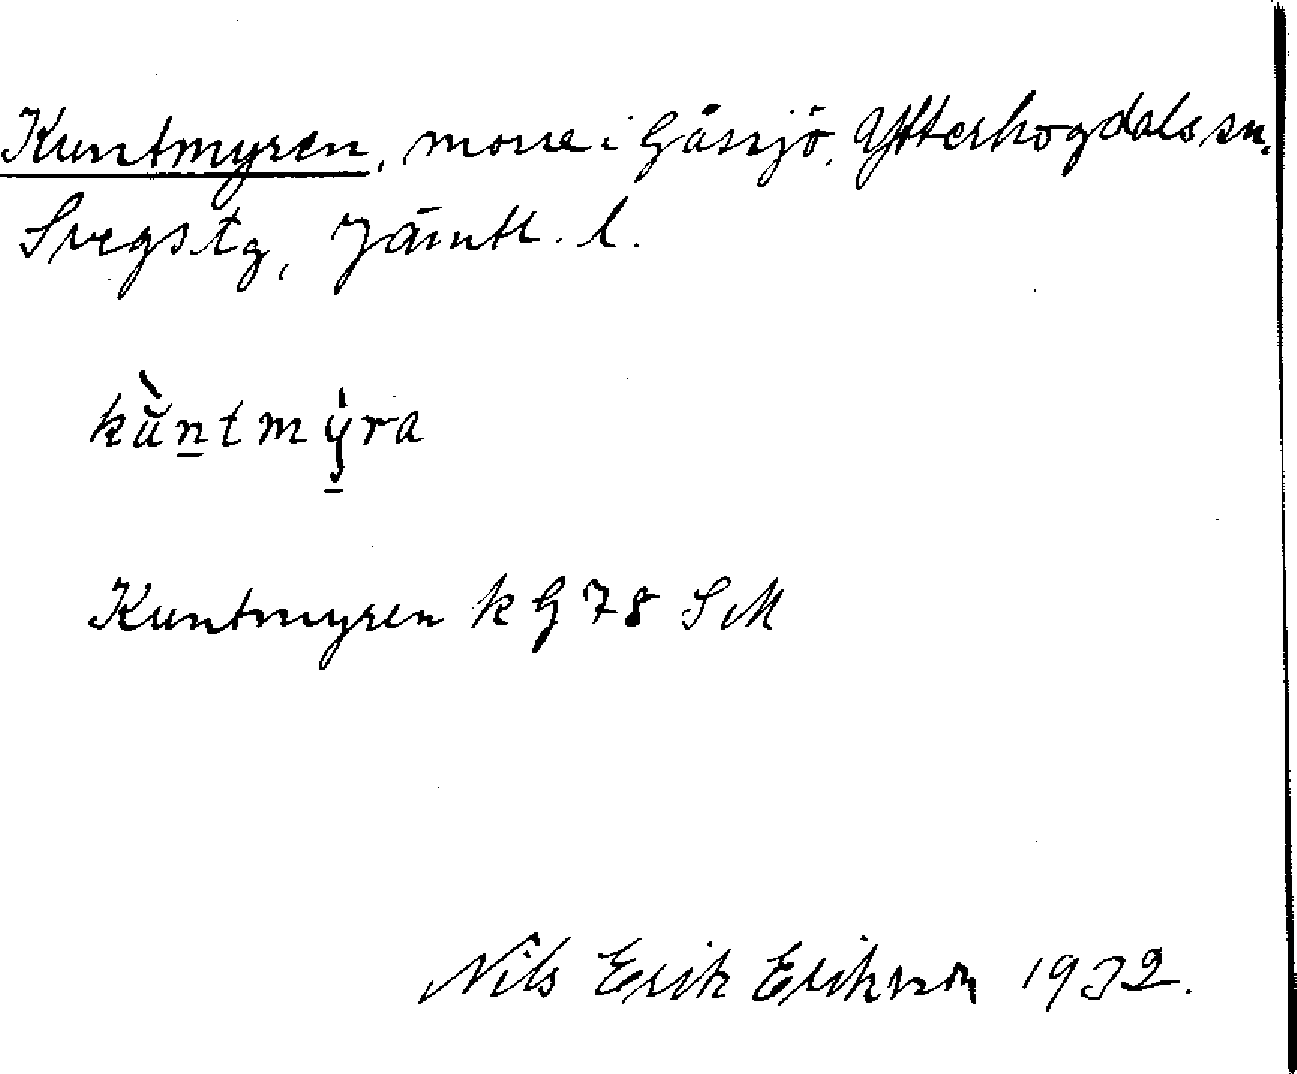 Kuntmyren, mosse i Gåssjö, Ytterhogdals sn.
Svegs tg, Jämtl. l.
kùn̲tmẏ̲ra
Kuntmyren k G 78 SM
Nils Erik Eriksson 1932.